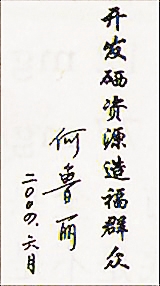 开发硒资源造福群众
何鲁丽
二〇〇八.六月